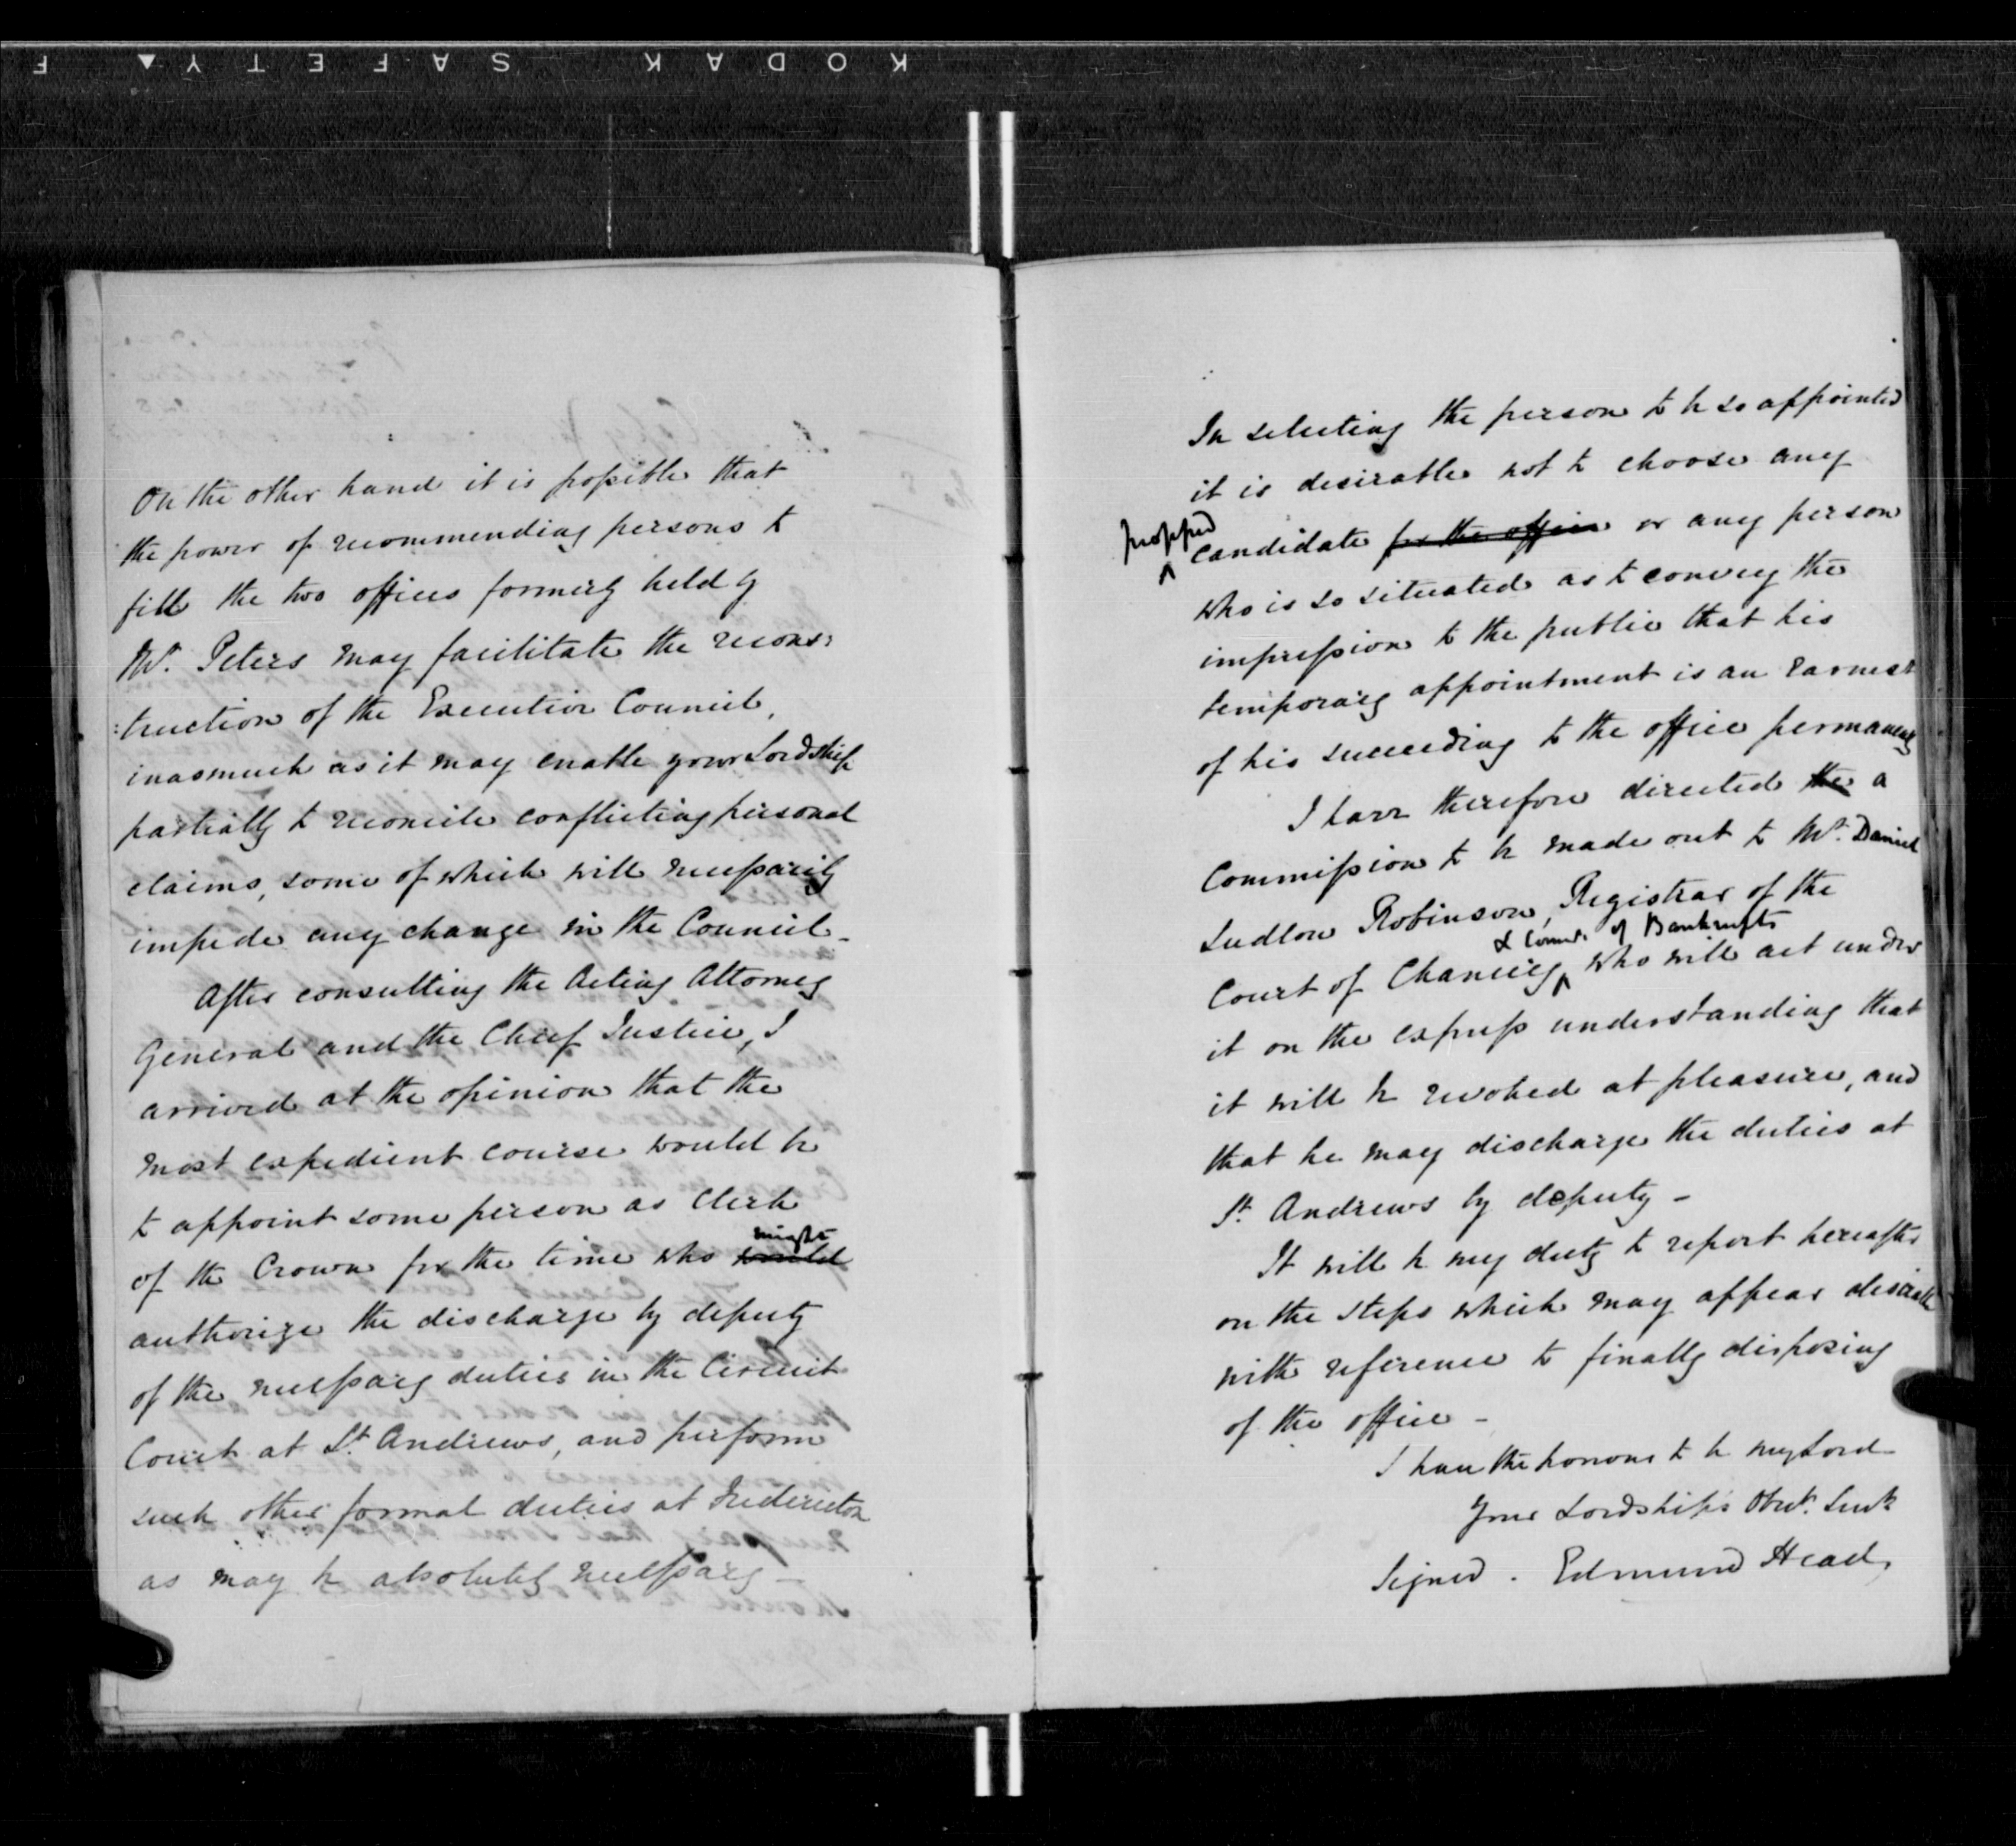 KODAK SAFETY ▲ F
On the other hand it is possible that
the power of recommending persons to
fill the two offices formerly held by
Mr. Peters may facilitate the recons:
:truction of the Executive Council,
inasmuch as it may enable your Lordship
partially to reconcile conflicting personal
claims, some of which will necessarily
impede any change in the Council -
After consulting the Acting Attorney
General and the Chief Justice, I
arrived at the opinion that the
most expedient course would be
to appoint some person as Clerk
might
of the Crown for the time who would
authorize the discharge by deputy
of the necessary duties in the Circuit
Court at St. Andrews, and perform
such other formal duties at Fredericton
as may be absolutely necessary -
In selecting the person to be so appointed
it is desirable not to choose any
professed
^ candidate for the office or any person
who is so situated as to convey the
impression to the public that his
temporary appointment is an earnest
of his succeeding to the office permanently
I have therefore directed the a
Commission to be made out to Mr. Daniel
Ludlow Robinson, Registrar of the
& Commr. of Bankrupts
Court of Chancery ^ who will act under
it on the express understanding that
it will be revoked at pleasure, and
that he may discharge the duties at
St. Andrews by deputy -
It will be my duty to report hereafter
on the steps which may appear desirable
with reference to finally disposing
of the office -
I have the honour to be my Lord
Your Lordship's Obt. Servt
Signed . Edmund Head,